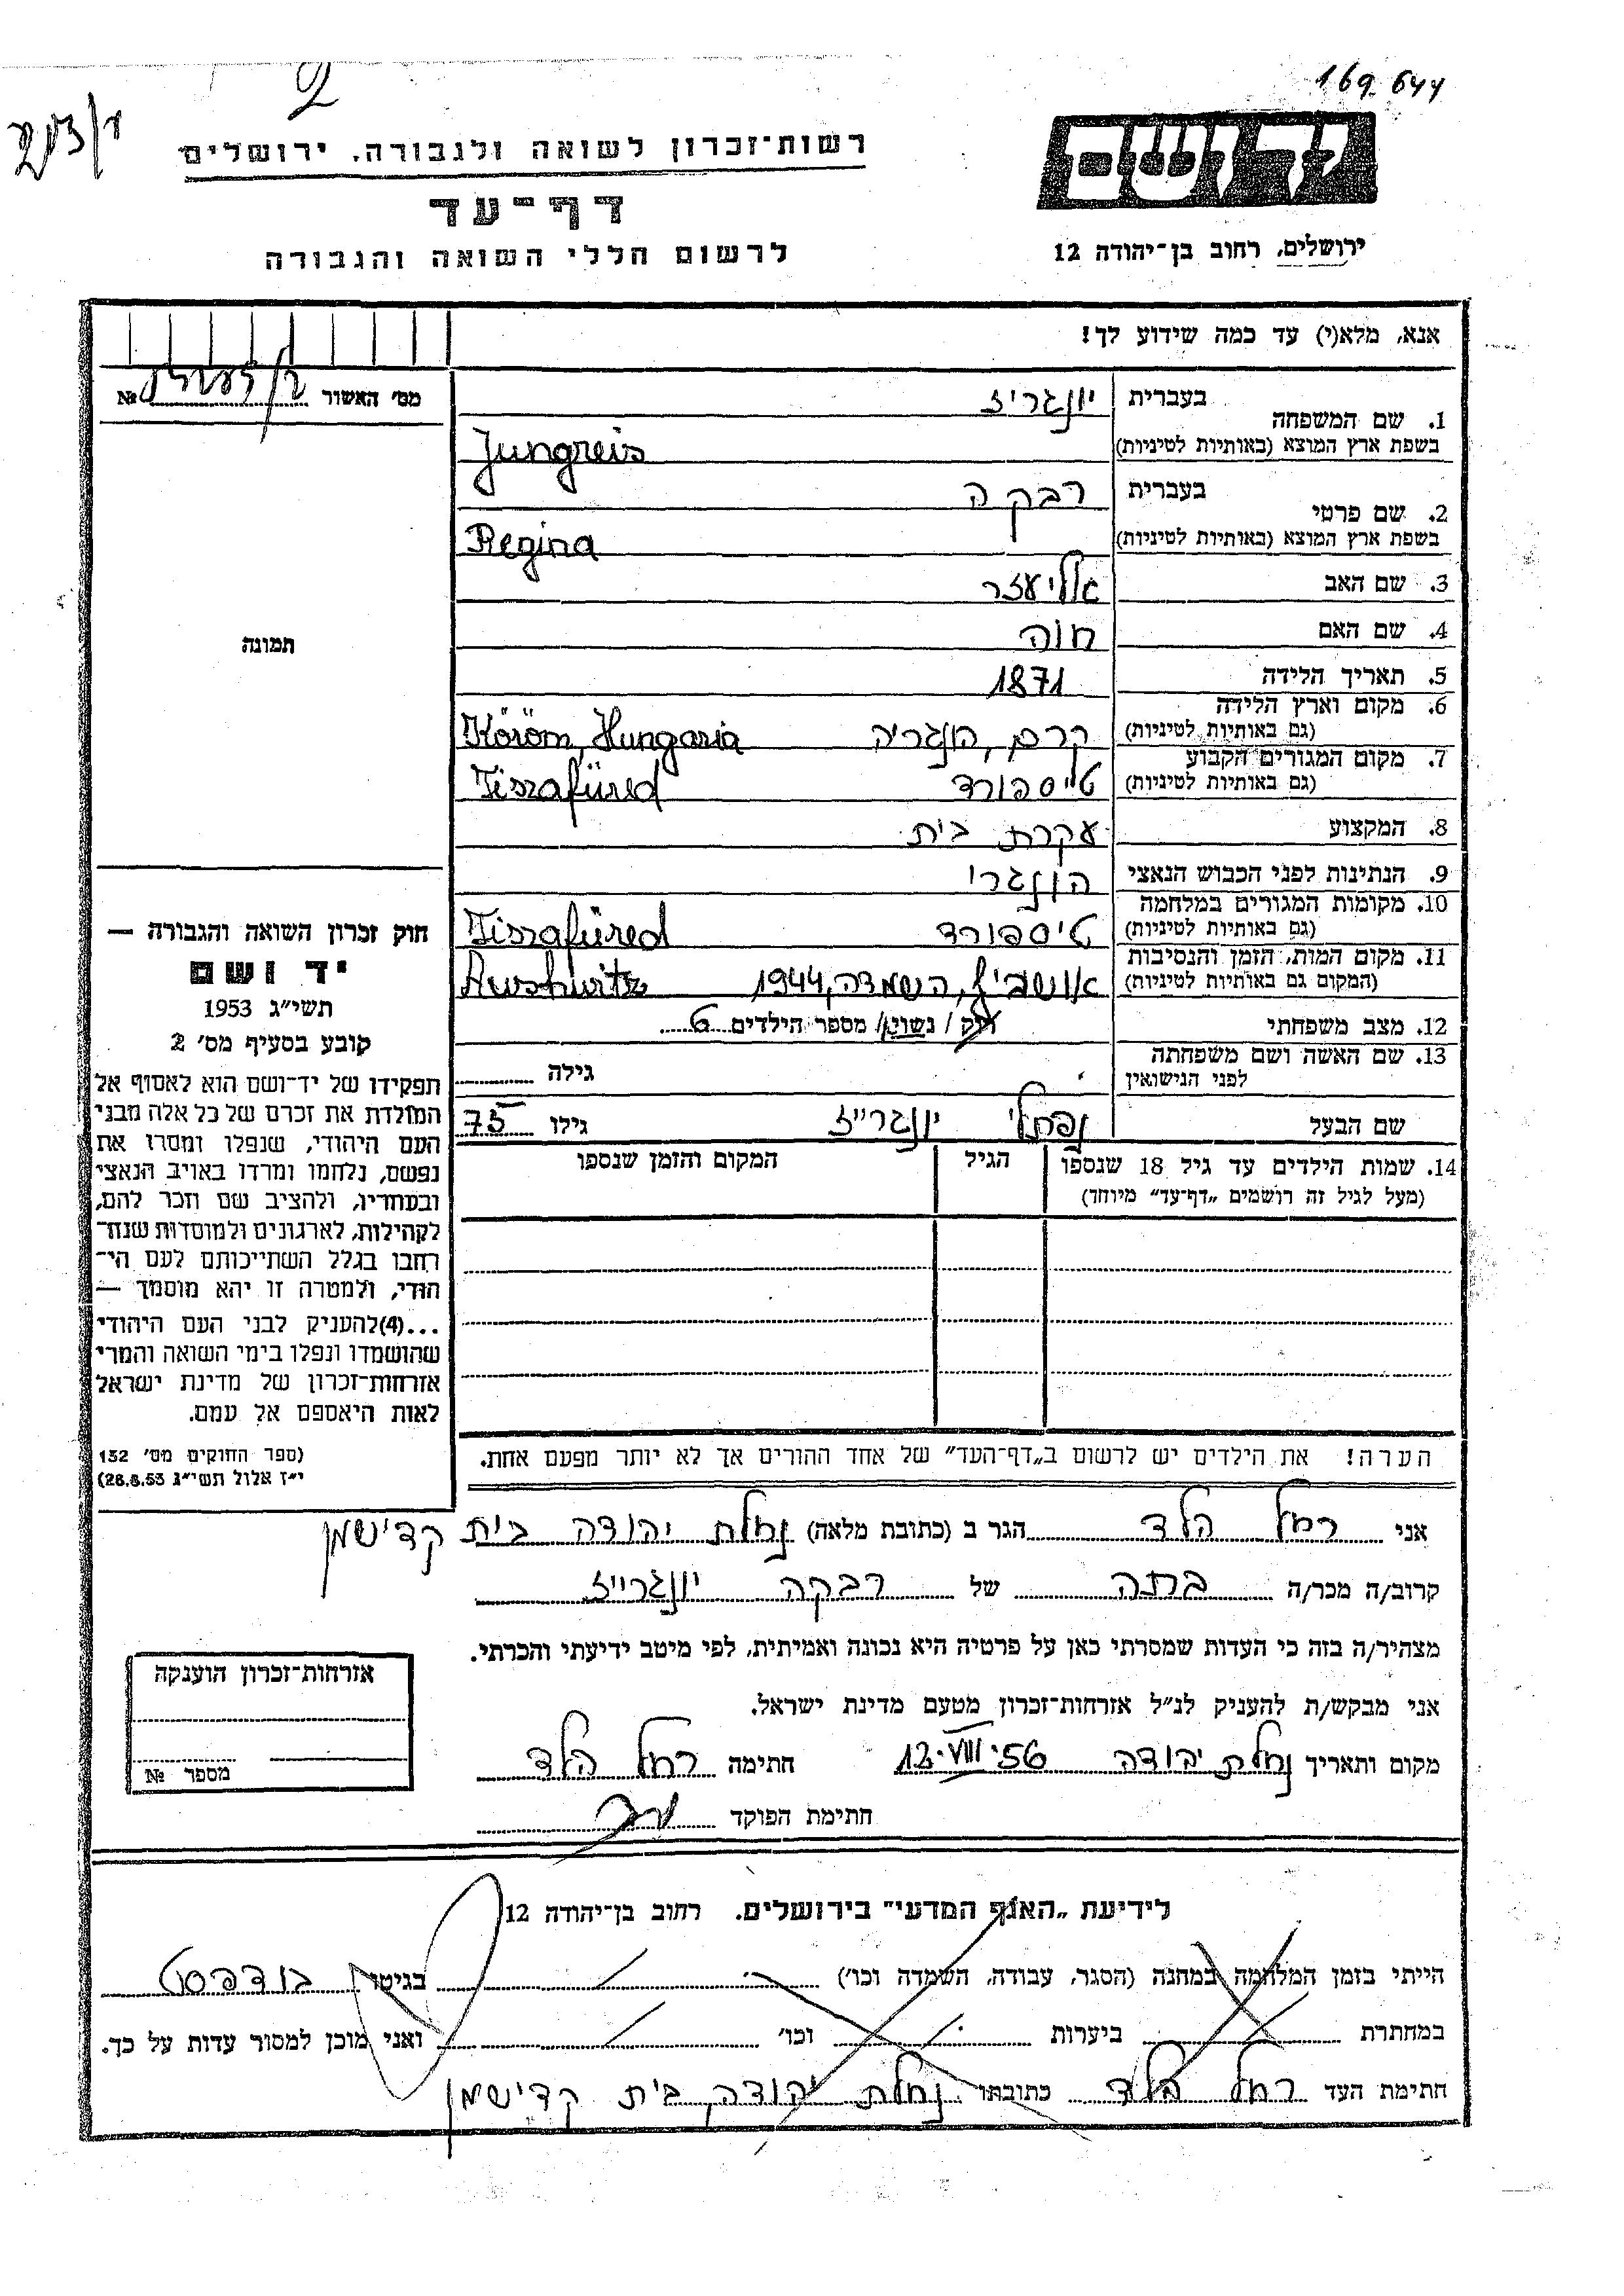 169 644
2
יד ושם
ירושלים, רחוב בן־יהודה 12
רשות־זכרון לשואה ולגבורה, ירושלים
דף־עד
לרשום חללי השואה והגבורה
אנא, מלא(י) עד כמה שידוע לך!
מס׳ האשור № 
1. שם המשפחה בעברית יונגריז
בשפת ארץ המוצא (באותיות לטיניות) Jungreis
2. שם פרטי בעברית רבקה
בשפת ארץ המוצא (באותיות לטיניות) Regina
3. שם האב אליעזר
4. שם האם חוה
5. תאריך הלידה 1871
6. מקום וארץ הלידה (גם באותיות לטיניות) קרם, הונגריה Köröm, Hungaria
7. מקום המגורים הקבוע (גם באותיות לטיניות) טייספורד Tiszafüred
8. המקצוע עקרת בית
9. הנתינות לפני הכבוש הנאצי הונגרי
10. מקומות המגורים במלחמה (גם באותיות לטיניות) טיספורד Tiszafüred
11. מקום המות, הזמן והנסיבות (המקום גם באותיות לטיניות) אושביץ, השמדה, 1944 Auschwitz
12. מצב משפחתי רוק / נשוי / מספר הילדים 6
13. שם האשה ושם משפחתה לפני הנישואין גילה
שם הבעל נפתלי יונגרייז גילו 75
14. שמות הילדים עד גיל 18 שנספו הגיל המקום והזמן שנספו
(מעל לגיל זה רושמים „דף־עד״ מיוחד)
הערה! את הילדים יש לרשום ב„דף־העד״ של אחד ההורים אך לא יותר מפעם אחת.
תמונה
חוק זכרון השואה והגבורה —
יד ושם
תשי״ג 1953
קובע בסעיף מס׳ 2
תפקידו של יד־ושם הוא לאסוף אל
המולדת את זכרם של כל אלה מבני
העם היהודי, שנפלו ומסרו את
נפשם, נלחמו ומרדו באויב הנאצי
ובעוזריו, ולהציב שם וזכר להם,
לקהילות, לארגונים ולמוסדות שנח־
רחבו בגלל השתייכותם לעם הי־
הודי, ולמטרה זו יהא מוסמך —
...(4) להעניק לבני העם היהודי
שהושמדו ונפלו בימי השואה והמרי
אזרחות־זכרון של מדינת ישראל
לאות היאספם אל עמם.
(ספר החוקים מס׳ 132
י״ז אלול תשי״ג 28.8.53)
אני רחל הלד הגר ב (כתובת מלאה) נחלת יהודה בית קדישמן
קרוב/ה מכר/ה בתה של רבקה יונגרייז
מצהיר/ה בזה כי העדות שמסרתי כאן על פרטיה היא נכונה ואמיתית, לפי מיטב ידיעתי והכרתי.
אני מבקש/ת להעניק לנ״ל אזרחות־זכרון מטעם מדינת ישראל.
מקום ותאריך נחלת יהודה 12.VIII.56 חתימה רחל הלד
חתימת הפוקד
אזרחות־זכרון הוענקה
מספר №
לידיעת „האגף המדעי״ בירושלים. רחוב בן־יהודה 12
הייתי בזמן המלחמה במחנה (הסגר, עבודה, השמדה וכו׳) בגיטו בודפסט
במחתרת ביערות וכו׳ ואני מוכן למסור עדות על כך.
חתימת העד רחל הלד כתובתו נחלת יהודה, בית קדישמן